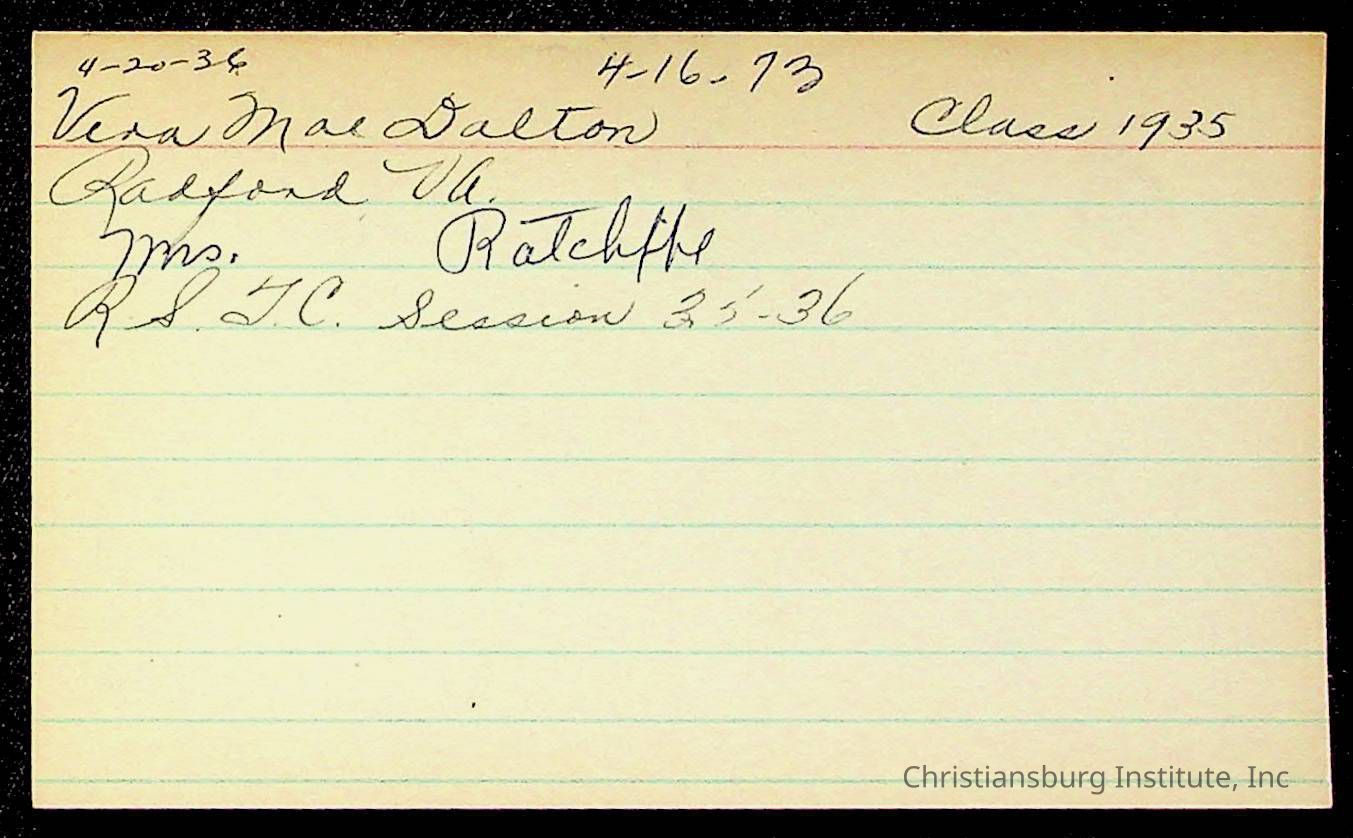 4-20-36 4-16-73
Vera Mae Dalton Class 1935
Radford Va.
Mrs. Ratcliffe
R. S. T. C. Session 35-36
Christiansburg Institute, Inc